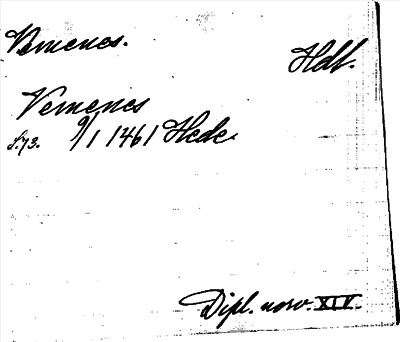 Vemenes.
Hdl.
Vemenes
s.73. 9/1 1461 Hede
Dipl. norv. XIV.